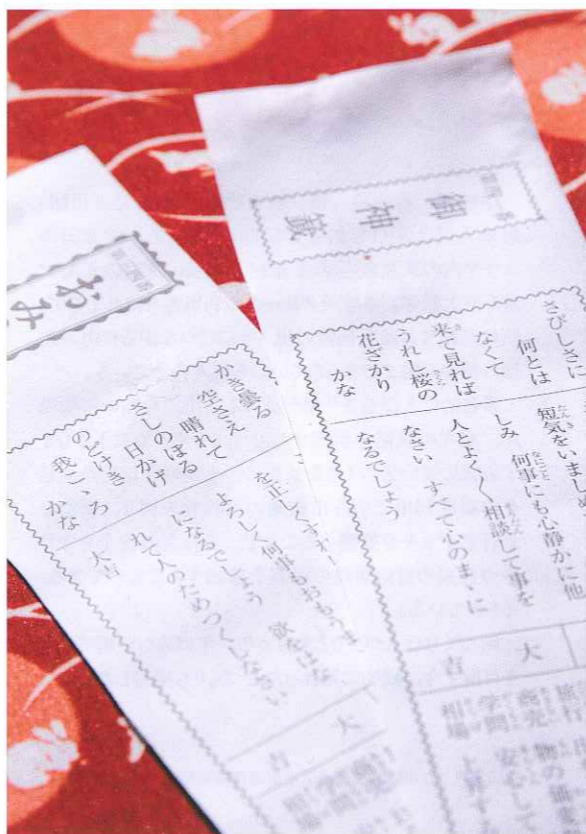 御神籤
さびしさに
何とは
なくて
来て見れば
うれし桜の
花ざかり
かな
短気をいましめ
しみ 何事にも心静かに他
人とよく〱相談して事を
なさい すべて心のまゝに
なるでしょう
大吉
商売
学問
相場
物の価
安心して
上昇す
おみ
かき曇る
空さえ
晴れて
さしのぼる
日かげ
のどけき
我こゝろ
かな
を正しくすれ
よろしく何事もおもう
になるでしょう 欲
れて人のためつくしなさい
大吉
大吉
商売
学問
相場